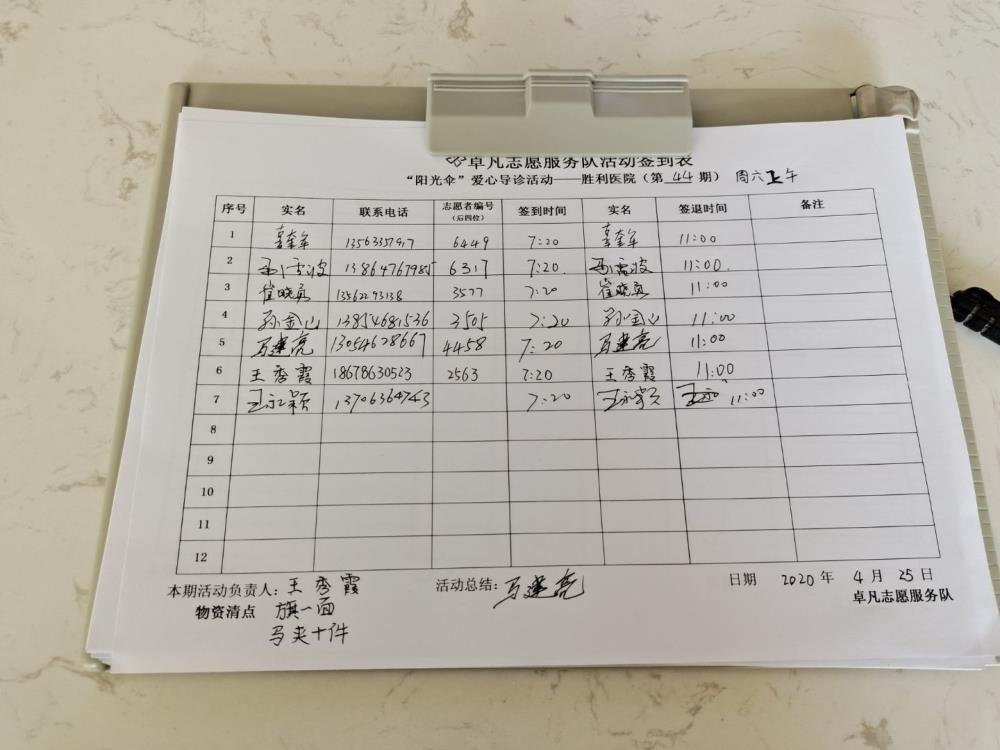 卓凡志愿服务队活动签到表
“阳光伞”爱心导诊活动——胜利医院（第 44 期） 周六上午
序号 实名 联系电话 志愿者编号（后四位） 签到时间 实名 签退时间 备注
1 6449 7:20 11:00
2 13864767985 6317 7:20. 11:00.
3 崔晓 13562293138 3577 7:20 崔晓 11:00
4 孙金山 13854681536 3505 7:20 孙金山 11:00
5 马建亮 13054628667 4458 7:20 马建亮 11:00
6 王秀霞 18678630523 2563 7:20 王秀霞 11:00
7 王永颖 13706364743 7:20 王永颖 11:00
8
9
10
11
12
本期活动负责人：王秀霞 活动总结：马建亮 日期 2020 年 4 月 25 日
物资清点 旗一面 卓凡志愿服务队
马夹十件